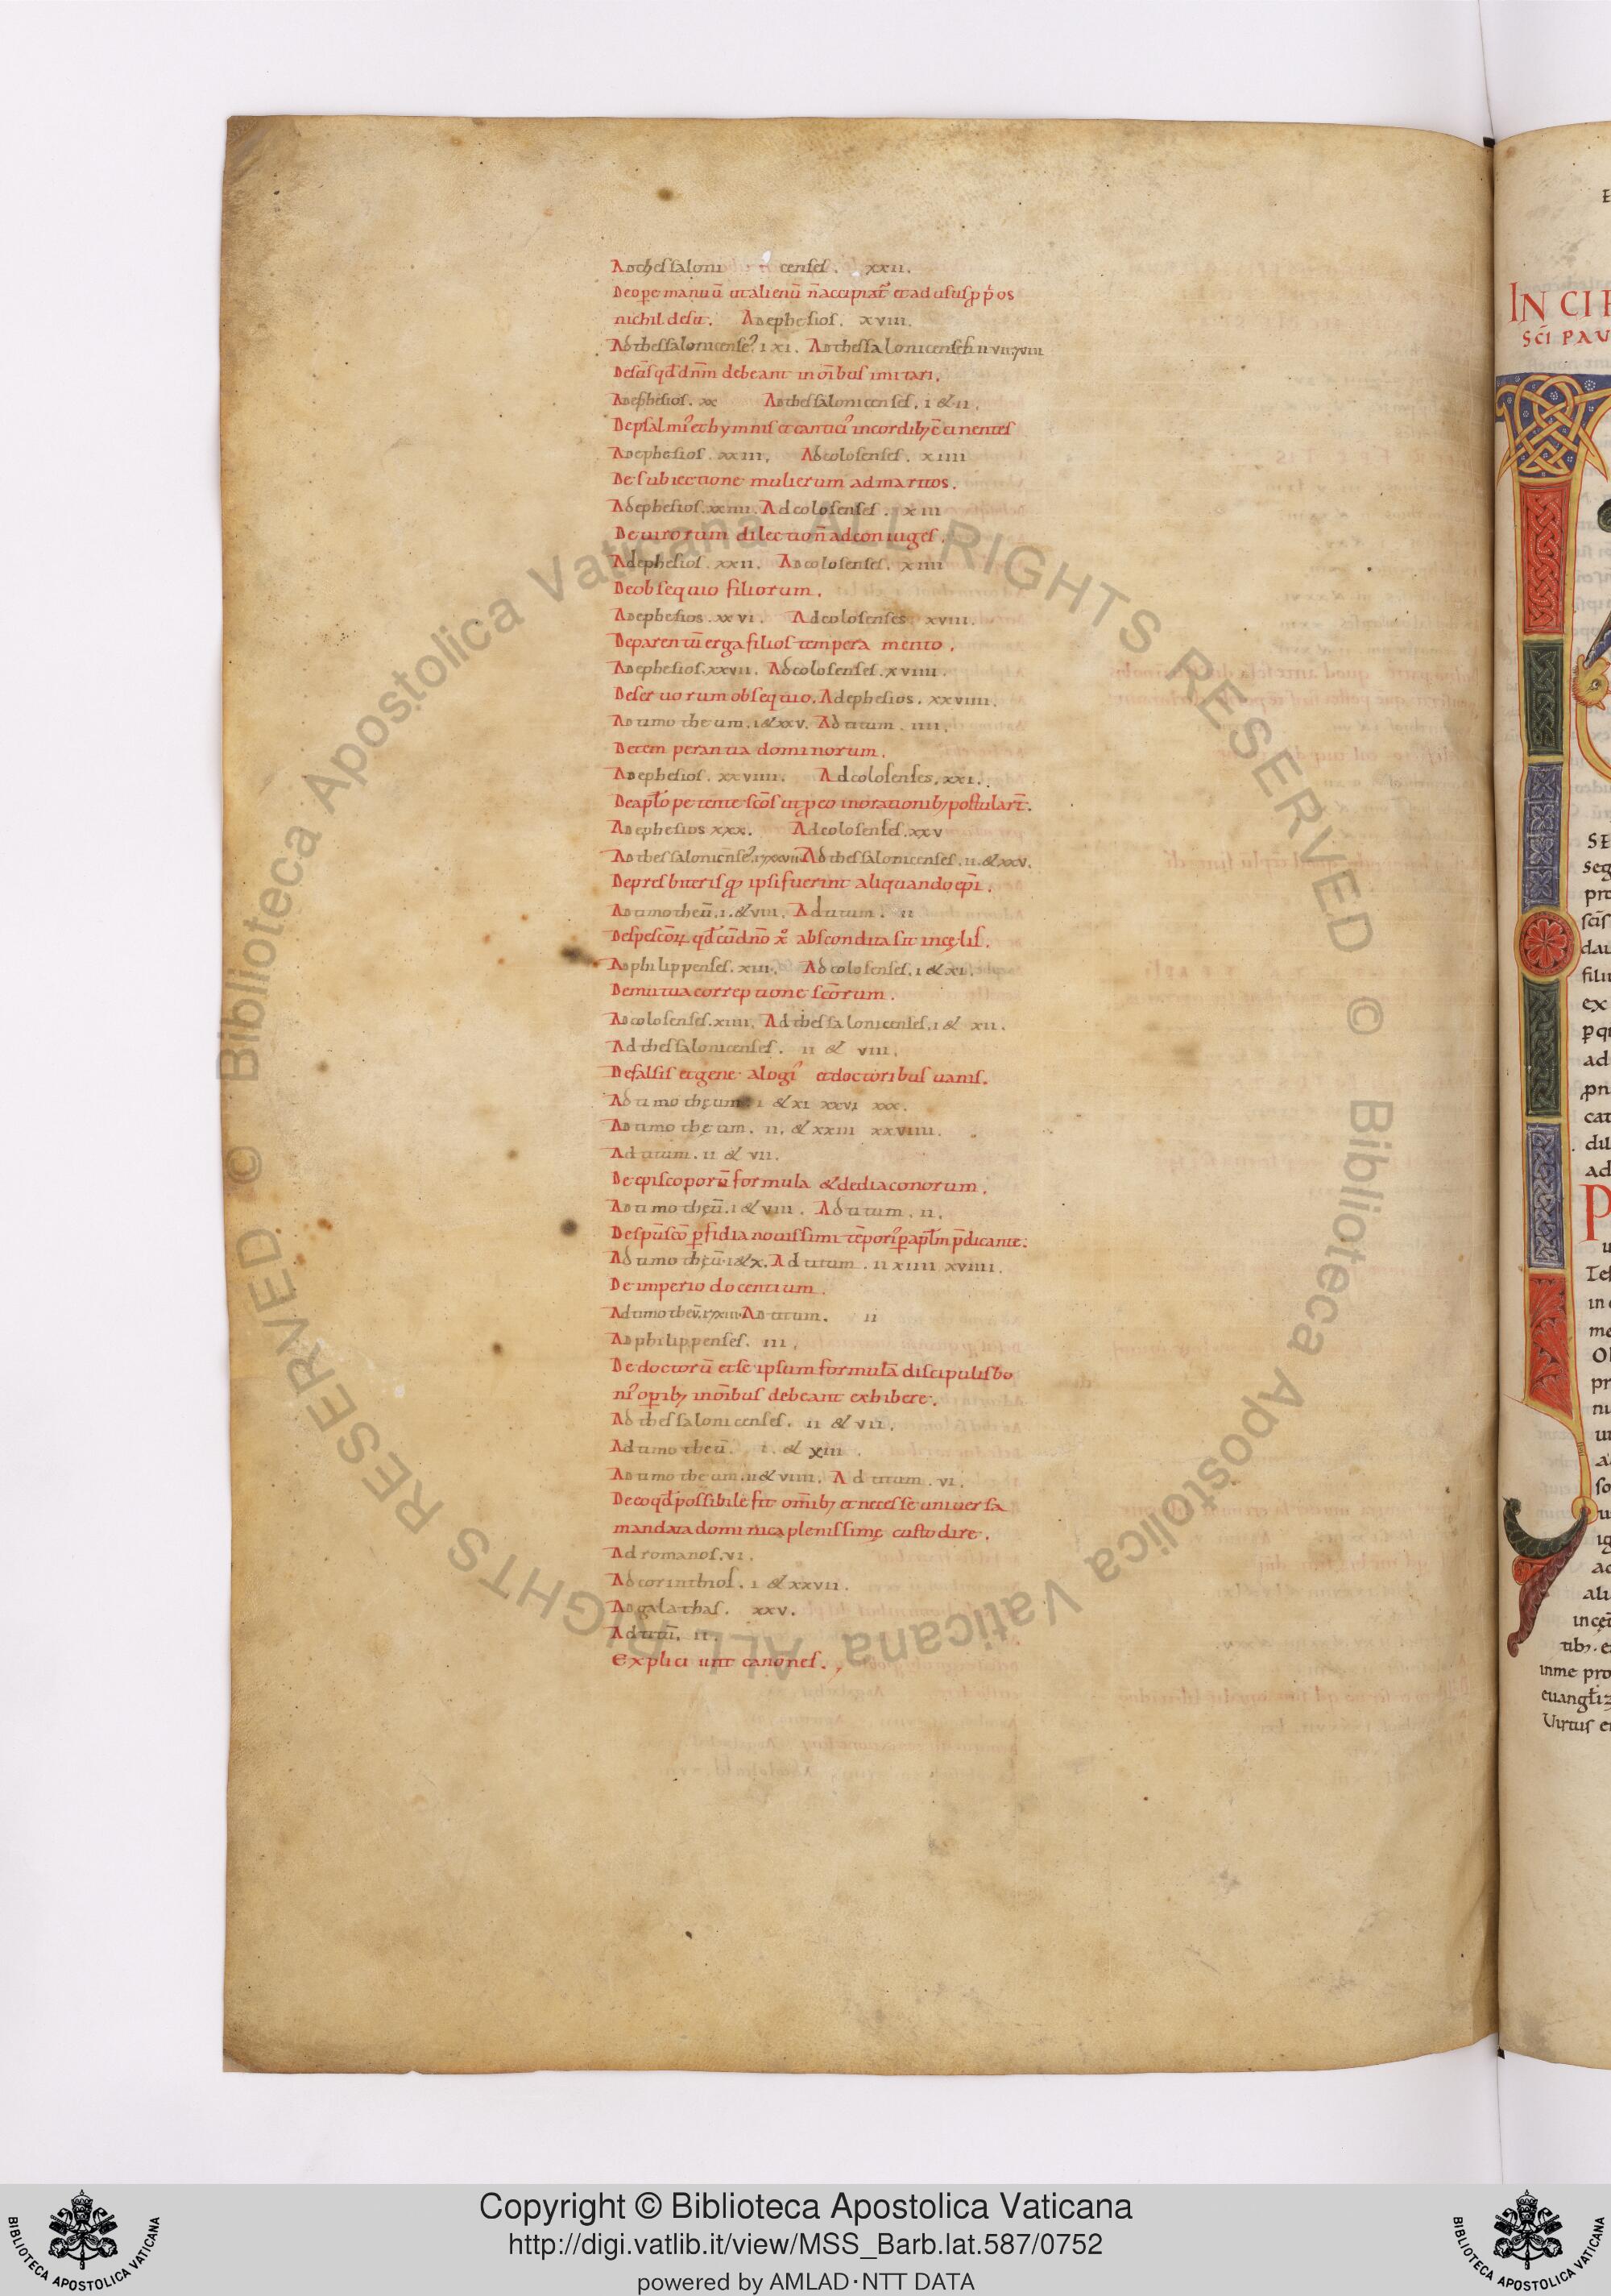 Ad thessaloni censes. xxii.
De ope manuū ut alienū n̄ accipiat᷑ et ad usus ꝓpos
nichil desit. Ad ephesios. xviii.
Ad thessalonicense᷒ i xi. Ad thessalonicenses ii vii
debeant in oīb; imitari.
Ad ephesios. xx Ad thessalonicenses. i & ii.
De psalmi᷒ et hymnis et cantici᷒ in cordib;
Ad ephesios. xxiii. Ad colosenses. xiiii
De subiectione mulierum ad maritos.
Ad ephesios. xxiiii. Ad colosenses. xiii
De uirorum dilection̄ ad coniuges.
Ad ephesios. xxii. Ad colosenses. xiiii
De obsequio filiorum.
Ad ephesios. xxvi. Ad colosenses xviii.
De parentū erga filios temperamento.
Ad ephesios. xxvii. Ad colosenses. xviiii.
De seruorum obsequio. Ad ephesios. xxviiii.
Ad timotheum. i & xxv. Ad titum. iiii.
De temperantia dominorum.
Ad ephesios. xxviiii. Ad colosenses. xxi.
De apło petente sc̄os ut ꝓ eo in orationib; postulart̄.
Ad ephesios xxx. Ad colosenses. xxv
Ad thessalonicense᷒ Ad thessalonicenses. ii. & xxv.
De presbiteris ipsi fuerint aliquando ep̄i.
Ad timotheū. i. & viii. Ad titum. ii
De spe sc̄oꝝ qđ cū dn̄o abscondita sit in cęlis.
Ad philippenses. xiii. Ad colosenses. i & xi.
De mutua correptione sc̄orum.
Ad colosenses. xiiii. Ad thessalonicenses. i & xii.
Ad thessalonicenses. ii & viii.
De falsis et genealogi᷒ et doctoribus uanis.
Ad timothęum i & xi xxvi xxx.
Ad timothęum. ii. & xxiii xxviiii.
Ad titum. ii & vii.
De episcoporū formula & de diaconorum.
Ad timothęū. i & viii. Ad titum. ii.
De sp̄u sc̄o ꝑfidia nouissimi tēpori᷒ ꝑ apłm p̄dicante.
Ad timothęū. i & x. Ad titum. ii xiiii xviiii.
De imperio docentium.
Ad timotheū. i Ad titum. ii
Ad philippenses. iii.
De doctorū et se ipsum formulā discipulis bo
ni᷒ oꝑib; in oīb; debeant exhibere.
Ad thessalonicenses. ii & vii.
Ad timotheū. i. & xiii.
Ad timotheum. ii & viiii. Ad titum. vi.
De eo qđ possibile sit om̄ib; et necesse uniuersa
mandata dominica plenissimę custodire.
Ad romanos. vi.
Ad corinthios. i & xxvii.
Ad galathas. xxv.
Ad titū. ii.
Expliciunt canones.
IN CI
SC̄I PAV
Copyright © Biblioteca Apostolica Vaticana
http://digi.vatlib.it/view/MSS_Barb.lat.587/0752
powered by AMLAD·NTT DATA
BIBLIOTECA APOSTOLICA VATICANA
BIBLIOTECA APOSTOLICA VATICANA
© Biblioteca Apostolica Vaticana ALL RIGHTS RESERVED © Biblioteca Apostolica Vaticana ALL RIGHTS RESERVED